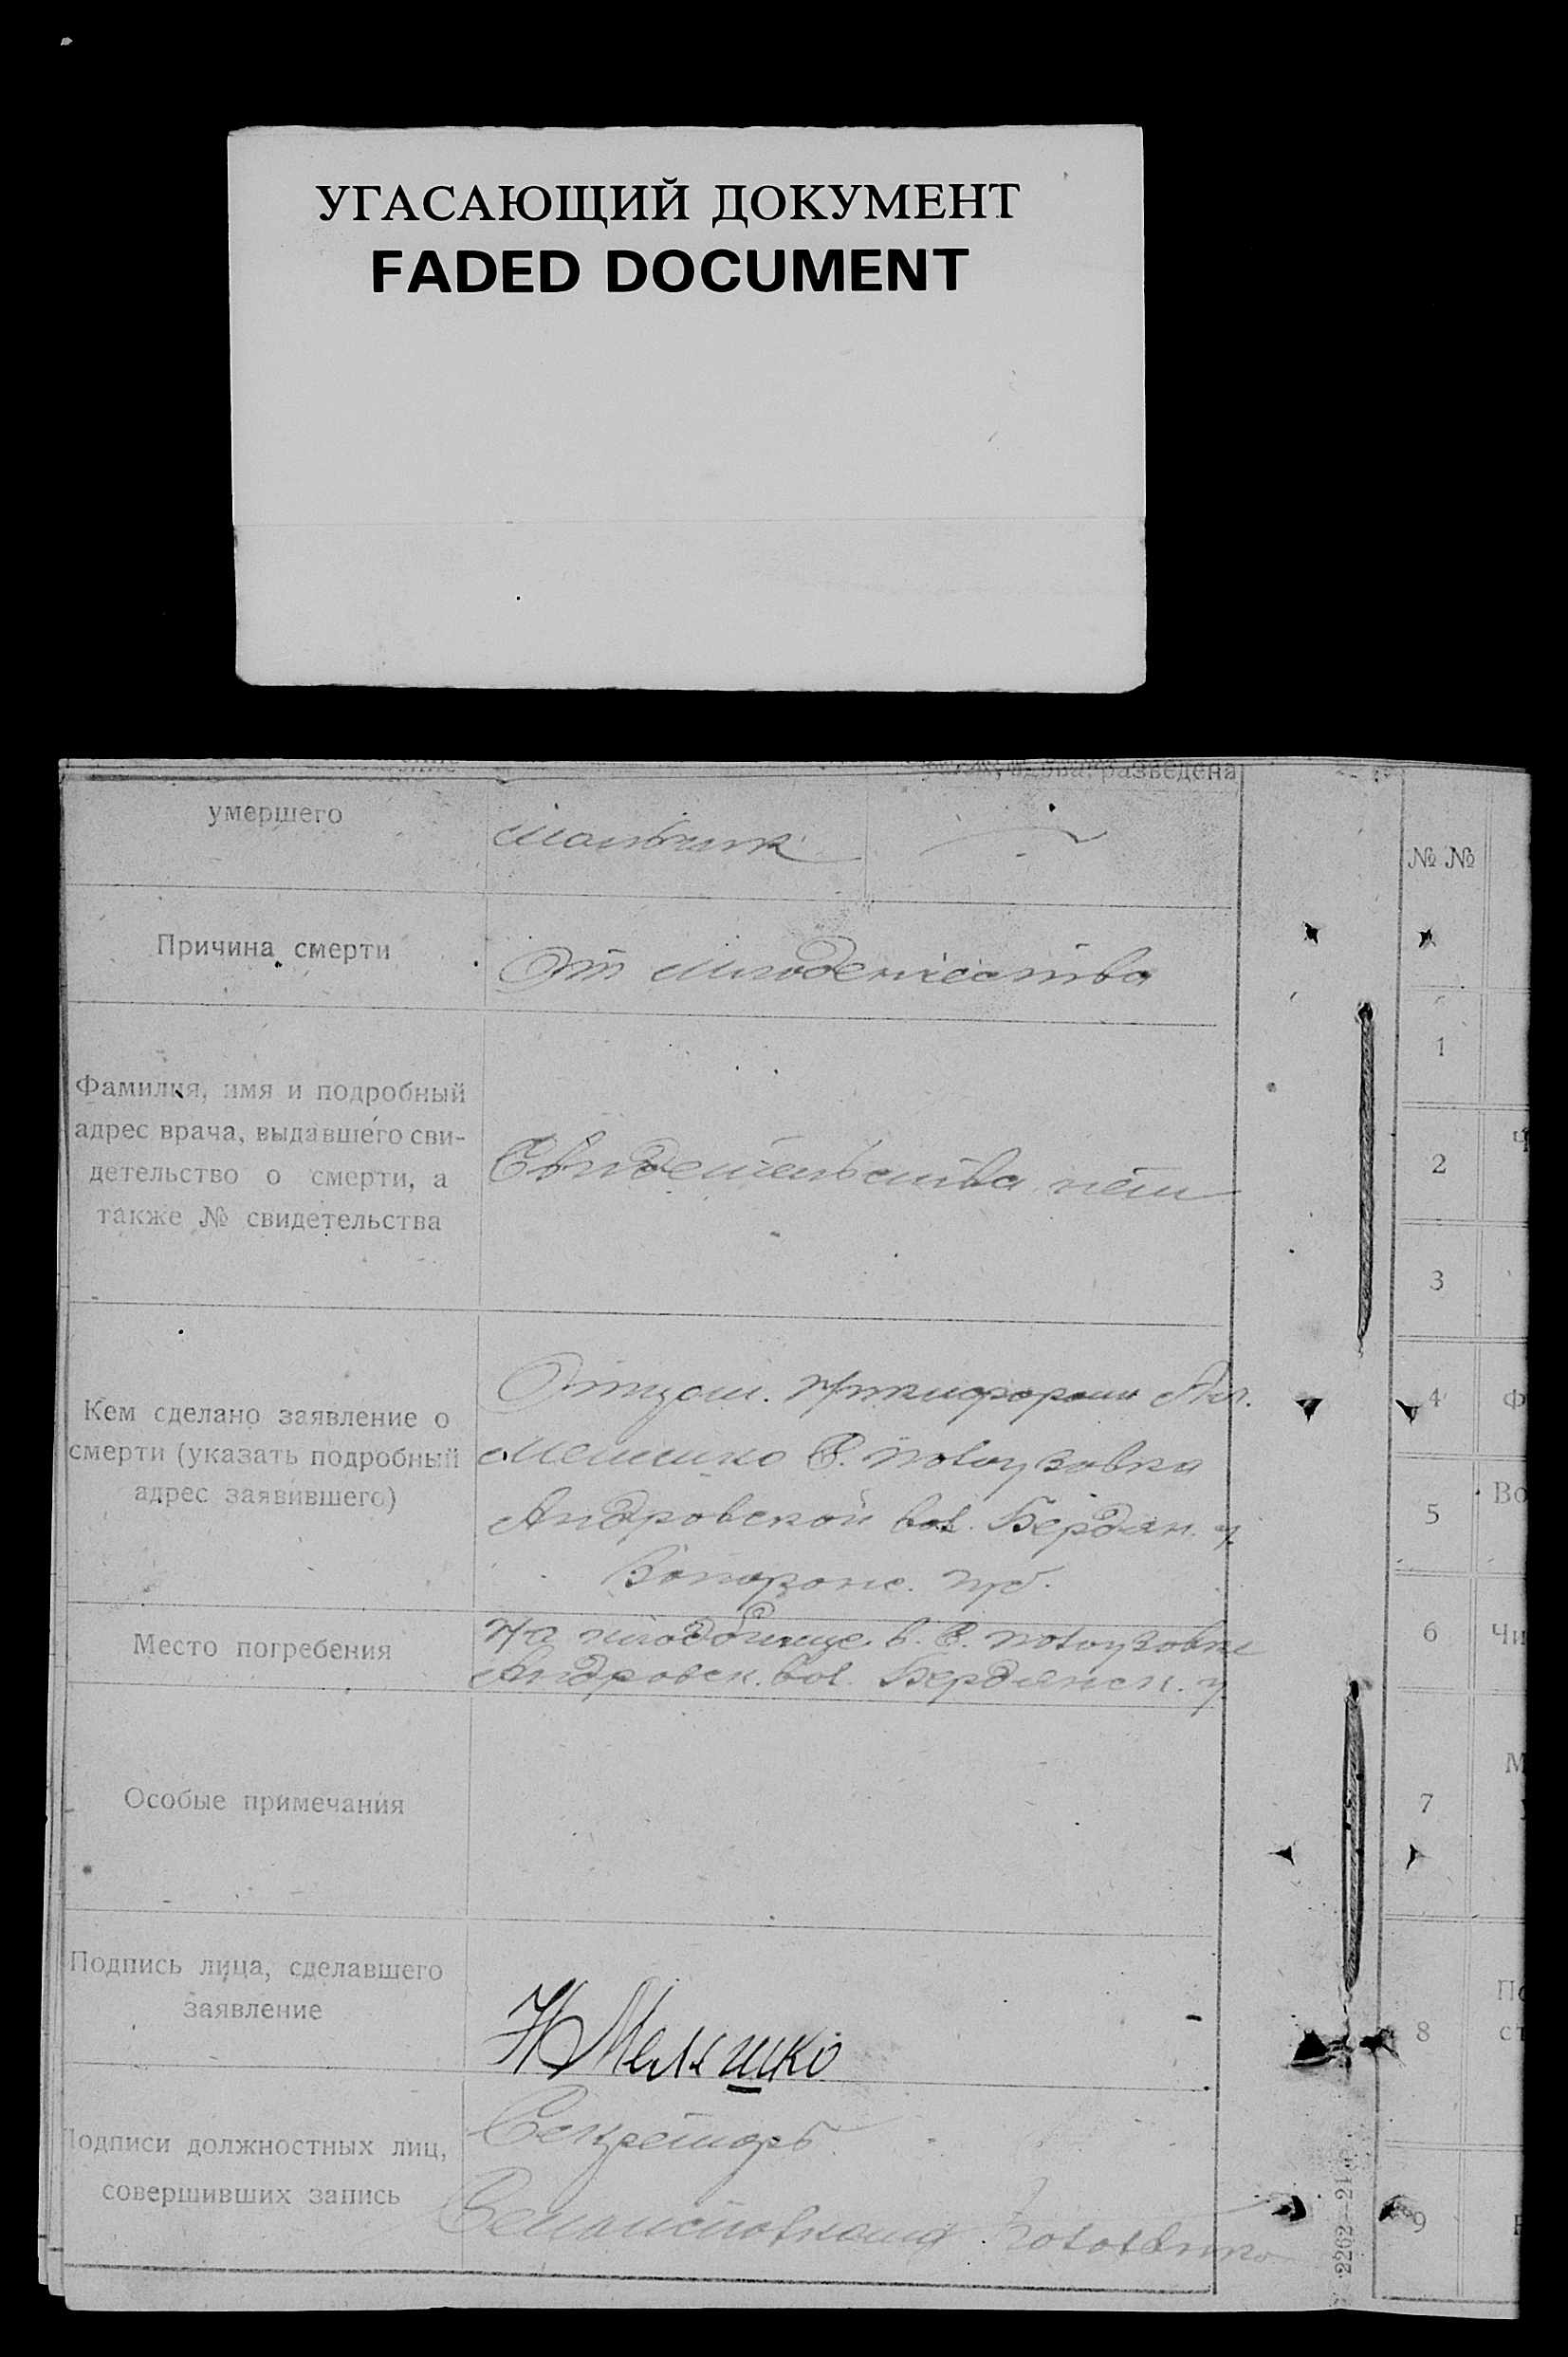 УГАСАЮЩИЙ ДОКУМЕНТ
FADED DOCUMENT
разведена
умершего
мальчик
Причина смерти
От младенчества
Фамилия, имя и подробный
адрес врача, выдавшего сви-
детельство о смерти, а
также № свидетельства
Свидетельства нет
Кем сделано заявление о
смерти (указать подробный
адрес заявившего)
Отцом. Никифором
С.
Андровской вол. Бердян. у.
Запорож. губ.
Место погребения
На кладбище в С.
Андровск. вол. Бердянск. у.
Особые примечания
Подпись лица, сделавшего
заявление
Н
Подписи должностных лиц,
совершивших запись
Секретарь
№ №
1
2
3
4
5
6
7
8
9
Ф
Во
Чи
2262—21